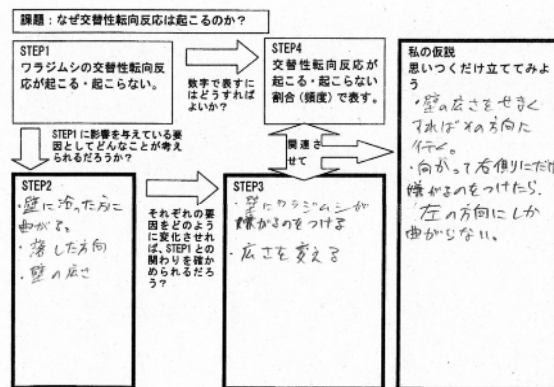 課題：なぜ交替性転向反応は起こるのか？
STEP1
ワラジムシの交替性転向反
応が起こる・起こらない。
数字で表すに
はどうすれば
よいか？
STEP4
交替性転向反応が
起こる・起こらない
割合（頻度）で表す。
STEP1に影響を与えている要
因としてどんなことが考え
られるだろうか？
関連さ
せて
STEP2
・壁に沿った方に
曲がる。
・落した方向
・壁の広さ
それぞれの要
因をどのよう
に変化させれ
ば、STEP1との
関わりを確か
められるだろ
う？
STEP3
・壁にワラジムシが
嫌がるのをつける
・広さを変える
私の仮説
思いつくだけ立ててみよ
う
・壁の広さをせまく
すればその方向に
行く。
・向かって右側にだけ
嫌がるのをつけたら、
左の方向にしか
曲がらない。